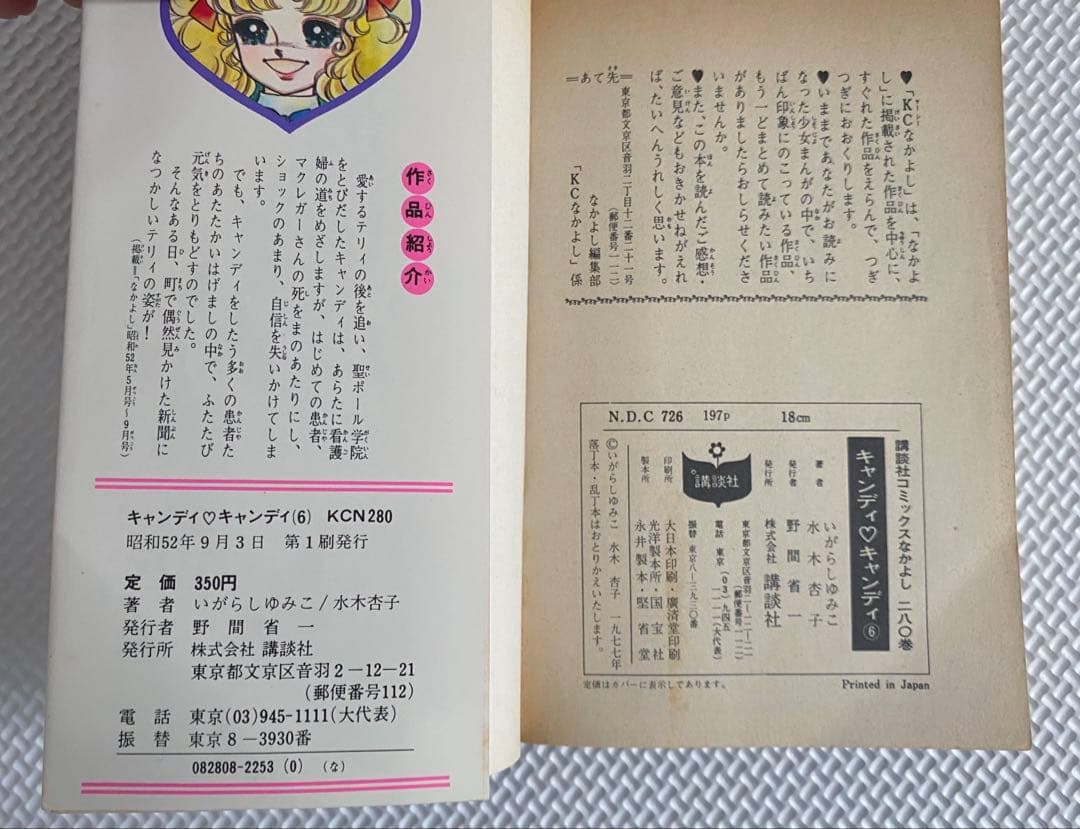 作品紹介
愛するテリィの後を追い、聖ポール学院
をとびだしたキャンディは、あらたに看護
婦の道をめざしますが、はじめての患者、
マクレガーさんの死をまのあたりにし、
ショックのあまり、自信を失いかけてしま
います。
でも、キャンディをしたう多くの患者た
ちのあたたかいはげましの中で、ふたたび
元気をとりもどすのでした。
そんなある日、町で偶然見かけた新聞に
なつかしいテリィの姿が!
(掲載=「なかよし」昭和52年5月号〜9月号)
キャンディ♡キャンディ(6) KCN280
昭和52年9月3日 第1刷発行
定価 350円
著者 いがらしゆみこ/水木杏子
発行者 野間省一
発行所 株式会社 講談社
東京都文京区音羽2-12-21
(郵便番号112)
電話 東京(03)945-1111(大代表)
振替 東京8-3930番
082808-2253(0)(な)
♥「KCなかよし」は、「なかよ
し」に掲載された作品を中心に、
すぐれた作品をえらんで、つぎ
つぎにおおくりします。
♥いままであなたがお読みに
なった少女まんがの中で、いち
ばん印象にのこっている作品、
もう一どまとめて読みたい作品
がありましたらおしらせくださ
いませんか。
♥また、この本を読んだご感想・
ご意見などもおきかせねがえれ
ば、たいへんうれしく思います。
=あて先=
東京都文京区音羽二丁目十二番二十一号
(郵便番号一一二)
なかよし編集部
「KCなかよし」係
N.D.C 726 197p 18cm
講談社コミックスなかよし 二八〇巻
キャンディ♡キャンディ⑥
著者 いがらしゆみこ
水木杏子
発行者 野間省一
発行所 株式会社 講談社
東京都文京区音羽二-一二-二一
(郵便番号一一二)
電話 東京(03)九四五
一一一一(大代表)
振替 東京八-三九三〇番
講談社
印刷所 大日本印刷・廣済堂印刷
製本所 光洋製本所・国宝社
永井製本・堅省堂
©いがらしゆみこ 水木杏子 一九七七年
落丁本・乱丁本はおとりかえいたします。
定価はカバーに表示してあります。
Printed in Japan